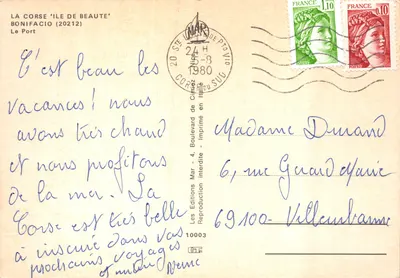 LA CORSE "ILE DE BEAUTE"
BONIFACIO (20212)
Le Port
C'est beau les
vacances! nous
avons très chaud
et nous profitons
de la mer. La
Corse est très belle
à inscrire dans vos
prochains voyages
Les Editions Mar - 4, Boulevard de Corse
Reproduction interdite - Imprimé en Italie
10003
24 H
8
1980
CORSE DU SUD
FRANCE
1,10
FRANCE
0,10
Madame Durand
6, rue Gérard Marie
69100 - Villeurbanne